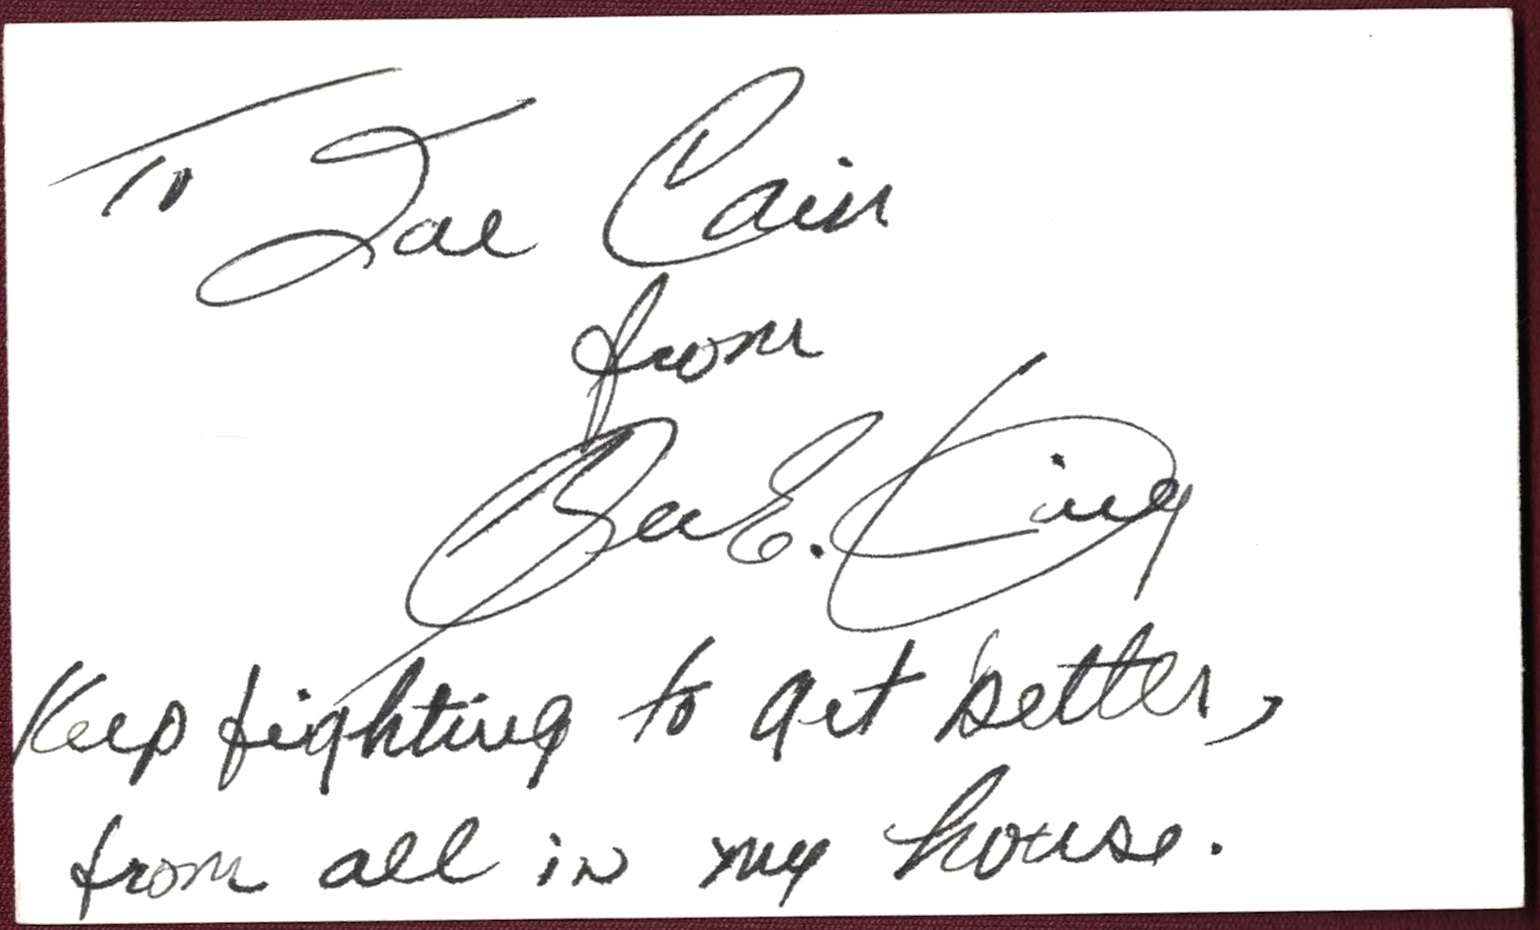 To Joe Cain
from
Ben E. King
Keep fighting to get better,
from all in my house.